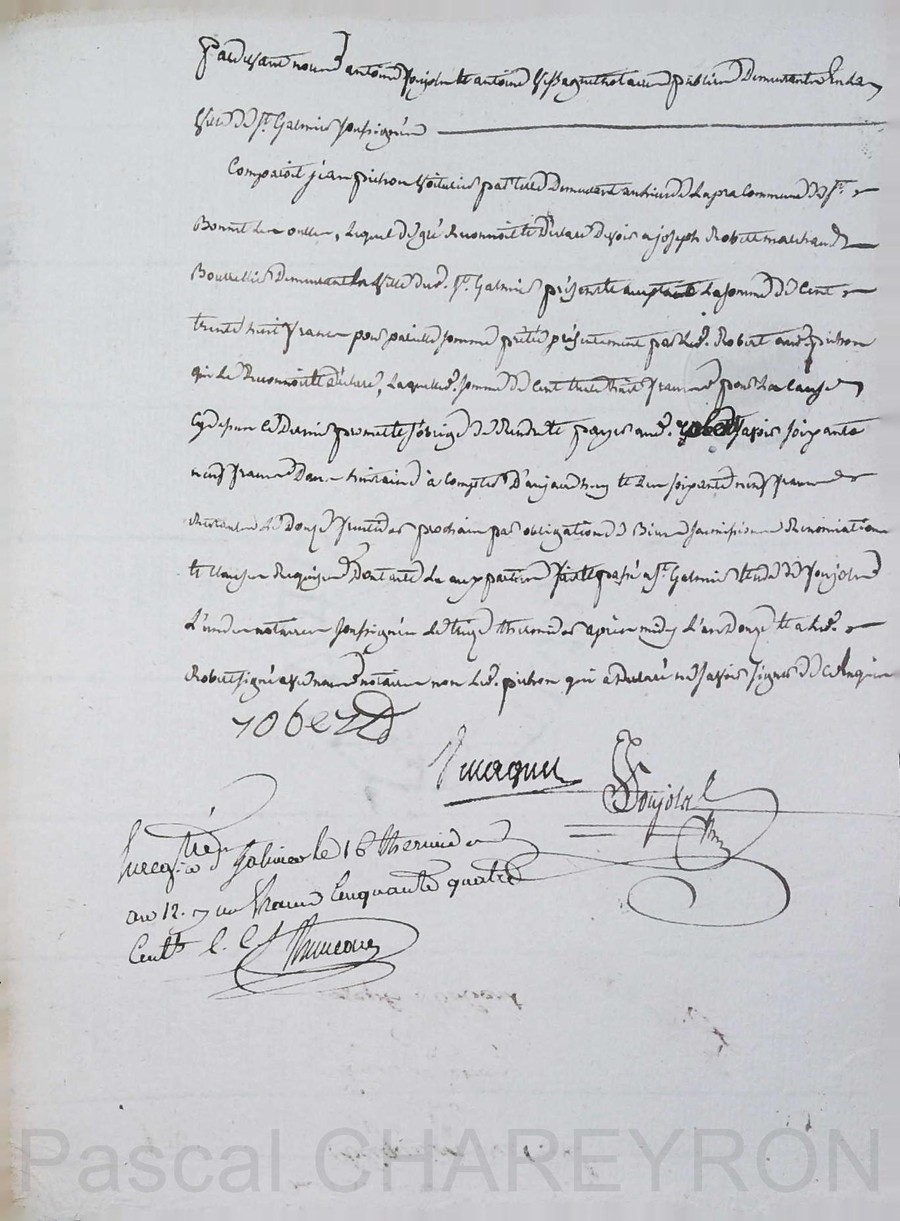 Pardevant nous antoine Ponjolat et antoine Vissaguet notaires publics Demeurants En la
Ville de St. Galmier soussignés
Comparoit jean pichon Voiturier par terre Demeurant au lieu de Lapra Commune de St.
Bonnet Les oulles, Lequel de gré Reconnoit et Déclare Devoir a joseph Robert marchand
Bourrellier Demeurant En Ville dud. St. Galmier présent et acceptant La somme de Cent
trente huit francs pour pareille somme prétée présentement par Led. Robert aud. pichon
qui Le Reconnoit et déclare, Laquelle d. somme de Cent trente huit francs pour La cause
Cy dessus ce Dernier promet et s'oblige de Rendre et payer aud. robert savoir soixante
neuf francs Dans un an à Compter D'aujourd'huy et Les soixante neuf francs
Restants Le Douze fructidor prochain par obligation de Biens soumissions Renonciations
et Clauses Requises Dont acte Lu aux parties fait et passé a St. Galmier Etude de
L'un des notaires soussignés Le treize thermidor après midy L'an Douze et a Led.
Robert signé avec nous notaires non Led. pichon qui a Déclaré ne savoir signer de ce Enquis
roberd
Enregtré. a St. Galmier le 16 thermidor
an 12. r un franc Cinquante quatre
Centes.
Pascal CHAREYRON